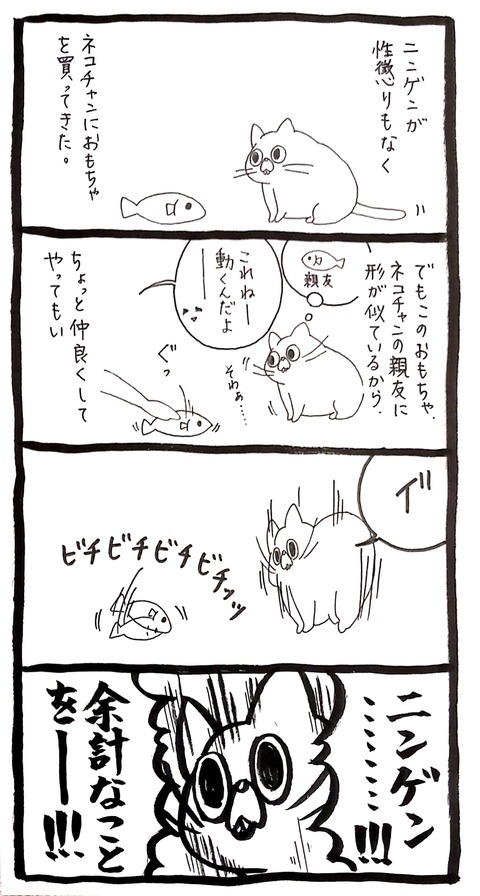 ニンゲンが
性懲りもなく
ネコチャンにおもちゃ
を買ってきた。
でもこのおもちゃ、
ネコチャンの親友に
形が似ているから、
親友
これねー
動くんだよ
ーー
そわぁ……
ぐっ
ちょっと仲良くして
やってもい
イ゛
ビチビチビチビチッッ
ニンゲン
…………!!!
余計なこと
をーー!!!